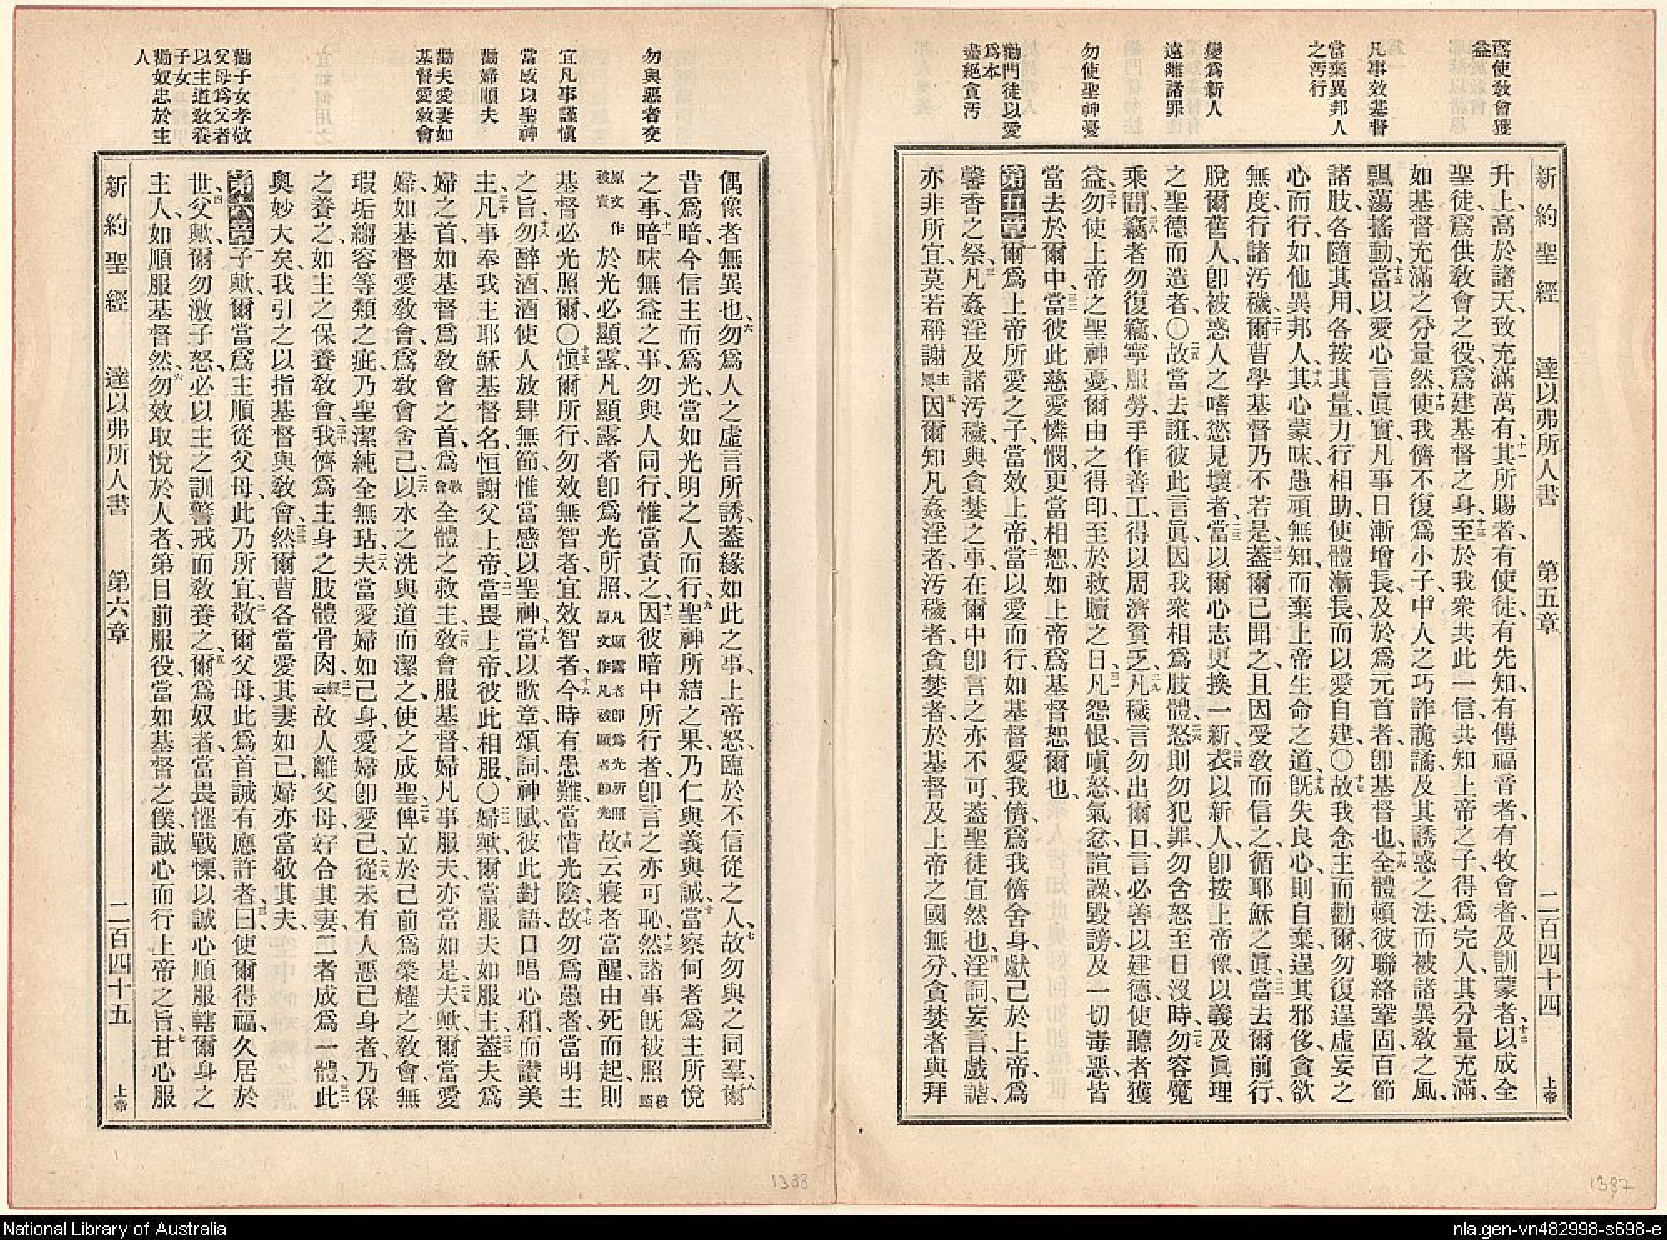 爲使敎會獲
益
凡事效基督
當棄異邦人
之汚行
變爲新人
遠離諸罪
勿使聖神憂
勸門徒以愛
爲本
盡絕貪汚
新約聖經 達以弗所人書 第五章 二百四十四 上帝
升上、高於諸天、致充滿萬有、十一其所賜者、有使徒、有先知、有傳福音者、有牧會者、及訓蒙者、十二以成全
聖徒、爲供敎會之役、爲建基督之身、十三至於我衆共此一信、共知上帝之子、得爲完人、其分量充滿、
如基督充滿之分量、十四然使我儕不復爲小子、中人之巧詐詭譎、及其誘惑之法、而被諸異敎之風、
飄蕩搖動、十五當以愛心言眞實、凡事日漸增長、及於爲元首者、卽基督也、十六全體賴彼聯絡鞏固、百節
諸肢、各隨其用、各按其量、力行相助、使體漸長、而以愛自建○十七故我念主而勸爾、勿復逞虛妄之
心而行、如他異邦人、十八其心蒙昧、愚頑無知、而棄上帝生命之道、十九旣失良心、則自棄、逞其邪侈貪欲
無度、行諸汚穢、二十爾曹學基督、乃不若是、二一蓋爾已聞之、且因受敎而信之、循耶穌之眞、二二當去爾前行、
脫爾舊人、卽被惑人之嗜慾見壞者、二三當以爾心志更換一新、二四衣以新人、卽按上帝像、以義及眞理
之聖德而造者、○二五故當去誑、彼此言眞、因我衆相爲肢體、二六怒則勿犯罪、勿含怒至日沒時、二七勿容魔
乘間、二八竊者勿復竊、寧服勞、手作善工、得以周濟貧乏、二九凡穢言勿出爾口、言必善以建德、使聽者獲
益、三十勿使上帝之聖神憂、爾由之得印、至於救贖之日、三一凡怨恨、嗔怒、氣忿、諠譟、毀謗、及一切毒惡、皆
當去於爾中、三二當彼此慈愛憐憫、更當相恕、如上帝爲基督恕爾也、
第五章 一爾爲上帝所愛之子、當效上帝、二當以愛而行、如基督愛我儕、爲我儕舍身、獻己於上帝、爲
馨香之祭、三凡姦淫及諸汚穢、與貪婪之事、在爾中卽言之亦不可、蓋聖徒宜然也、四淫詞、妄言、戲謔、
亦非所宜、莫若稱謝主恩、五因爾知凡姦淫者、汚穢者、貪婪者、於基督及上帝之國無分、貪婪者與拜
勿與惡者交
宜凡事謹愼
當感以聖神
勸婦順夫
勸夫愛妻如
基督愛敎會
勸子女孝敬
父母爲父者
以主道敎養
子女
勸奴忠於主
人
偶像者無異也、六勿爲人之虛言所誘、蓋緣如此之事、上帝怒臨於不信從之人、七故勿與之同羣、八爾
昔爲暗、今信主而爲光、當如光明之人而行、九聖神所結之果、乃仁與義與誠、十當察何者爲主所悅
之事、十一暗昧無益之事、勿與人同行、惟當責之、十二因彼暗中所行者、卽言之亦可恥、十三然諸事旣被照顯
原文作被責於光必顯露、凡顯露者卽爲光所照、凡顯露者卽爲光所照原文作凡被顯者卽光十四故云、寢者當醒、由死而起、則
基督必光照爾、○十五愼爾所行、勿效無智者、宜效智者、十六今時有患難、當惜光陰、十七故勿爲愚者、當明主
之旨、十八勿醉酒、酒使人放肆無節、惟當感以聖神、十九當以歌章、頌詞、神賦、彼此對語、口唱心和、而讚美
主、二十凡事奉我主耶穌基督名、恒謝父上帝、二一當畏上帝、彼此相服、○二二婦歟、爾當服夫如服主、二三蓋夫爲
婦之首、如基督爲敎會之首、爲敎會全體之救主、二四敎會服基督、婦凡事服夫、亦當如是、二五夫歟、爾當愛
婦、如基督愛敎會、爲敎會舍己、二六以水之洗與道而潔之、使之成聖、二七俾立於己前、爲榮耀之敎會、無
瑕垢縐容等類之疵、乃聖潔純全無玷、二八夫當愛婦如己身、愛婦卽愛己、二九從未有人惡己身者、乃保
之養之、如主之保養敎會、三十我儕爲主身之肢體骨肉、三一經云、故人離父母、好合其妻、二者成爲一體、三二此
奧妙大矣、我引之以指基督與敎會、三三然爾曹各當愛其妻如己、婦亦當敬其夫、
第六章 一子歟、爾當爲主順從父母、此乃所宜、二敬爾父母、此爲首誡有應許者、三曰、使爾得福、久居於
世、四父歟、爾勿激子怒、必以主之訓警戒而敎養之、五爾爲奴者、當畏懼戰慄、以誠心順服轄爾身之
主人、如順服基督然、六勿效取悅於人者、第目前服役、當如基督之僕、誠心而行上帝之旨、七甘心服
新約聖經 達以弗所人書 第六章 二百四十五 上帝
1388
1387
National Library of Australia
nla.gen-vn482998-s698-e